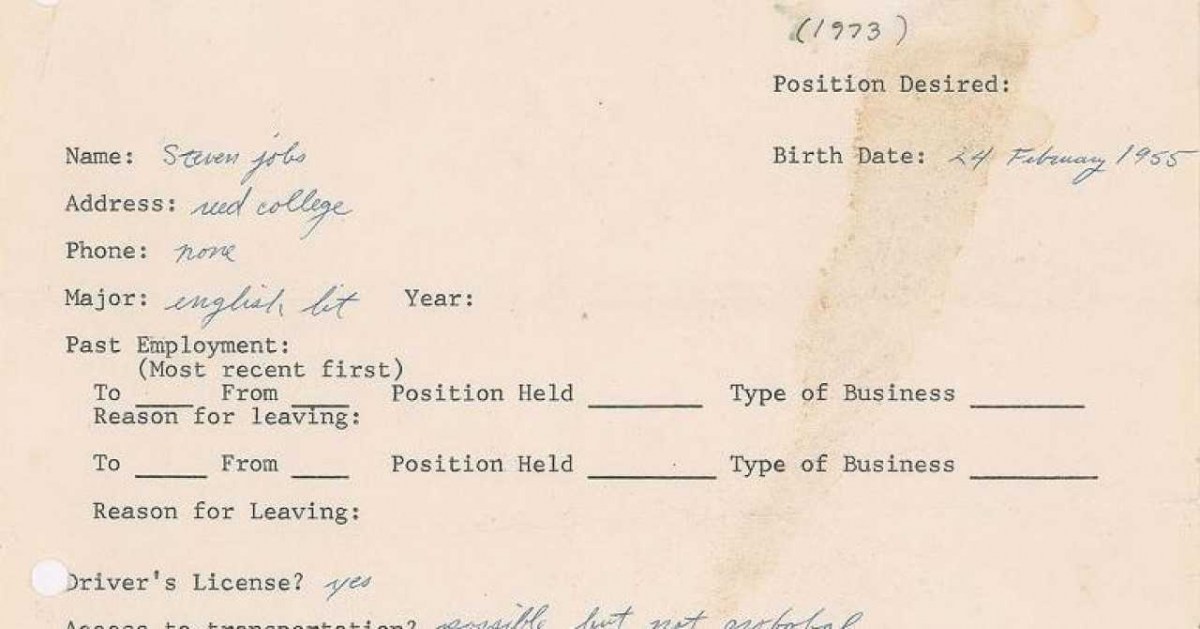 (1973)
Position Desired:
Name: Steven jobs Birth Date: 24 February 1955
Address: reed college
Phone: none
Major: english lit Year:
Past Employment:
(Most recent first)
To ____ From ____ Position Held ________ Type of Business ________
Reason for leaving:
To _____ From ____ Position Held _________ Type of Business _________
Reason for Leaving:
Driver's License? yes
Access to transportation? possible, but not probabal